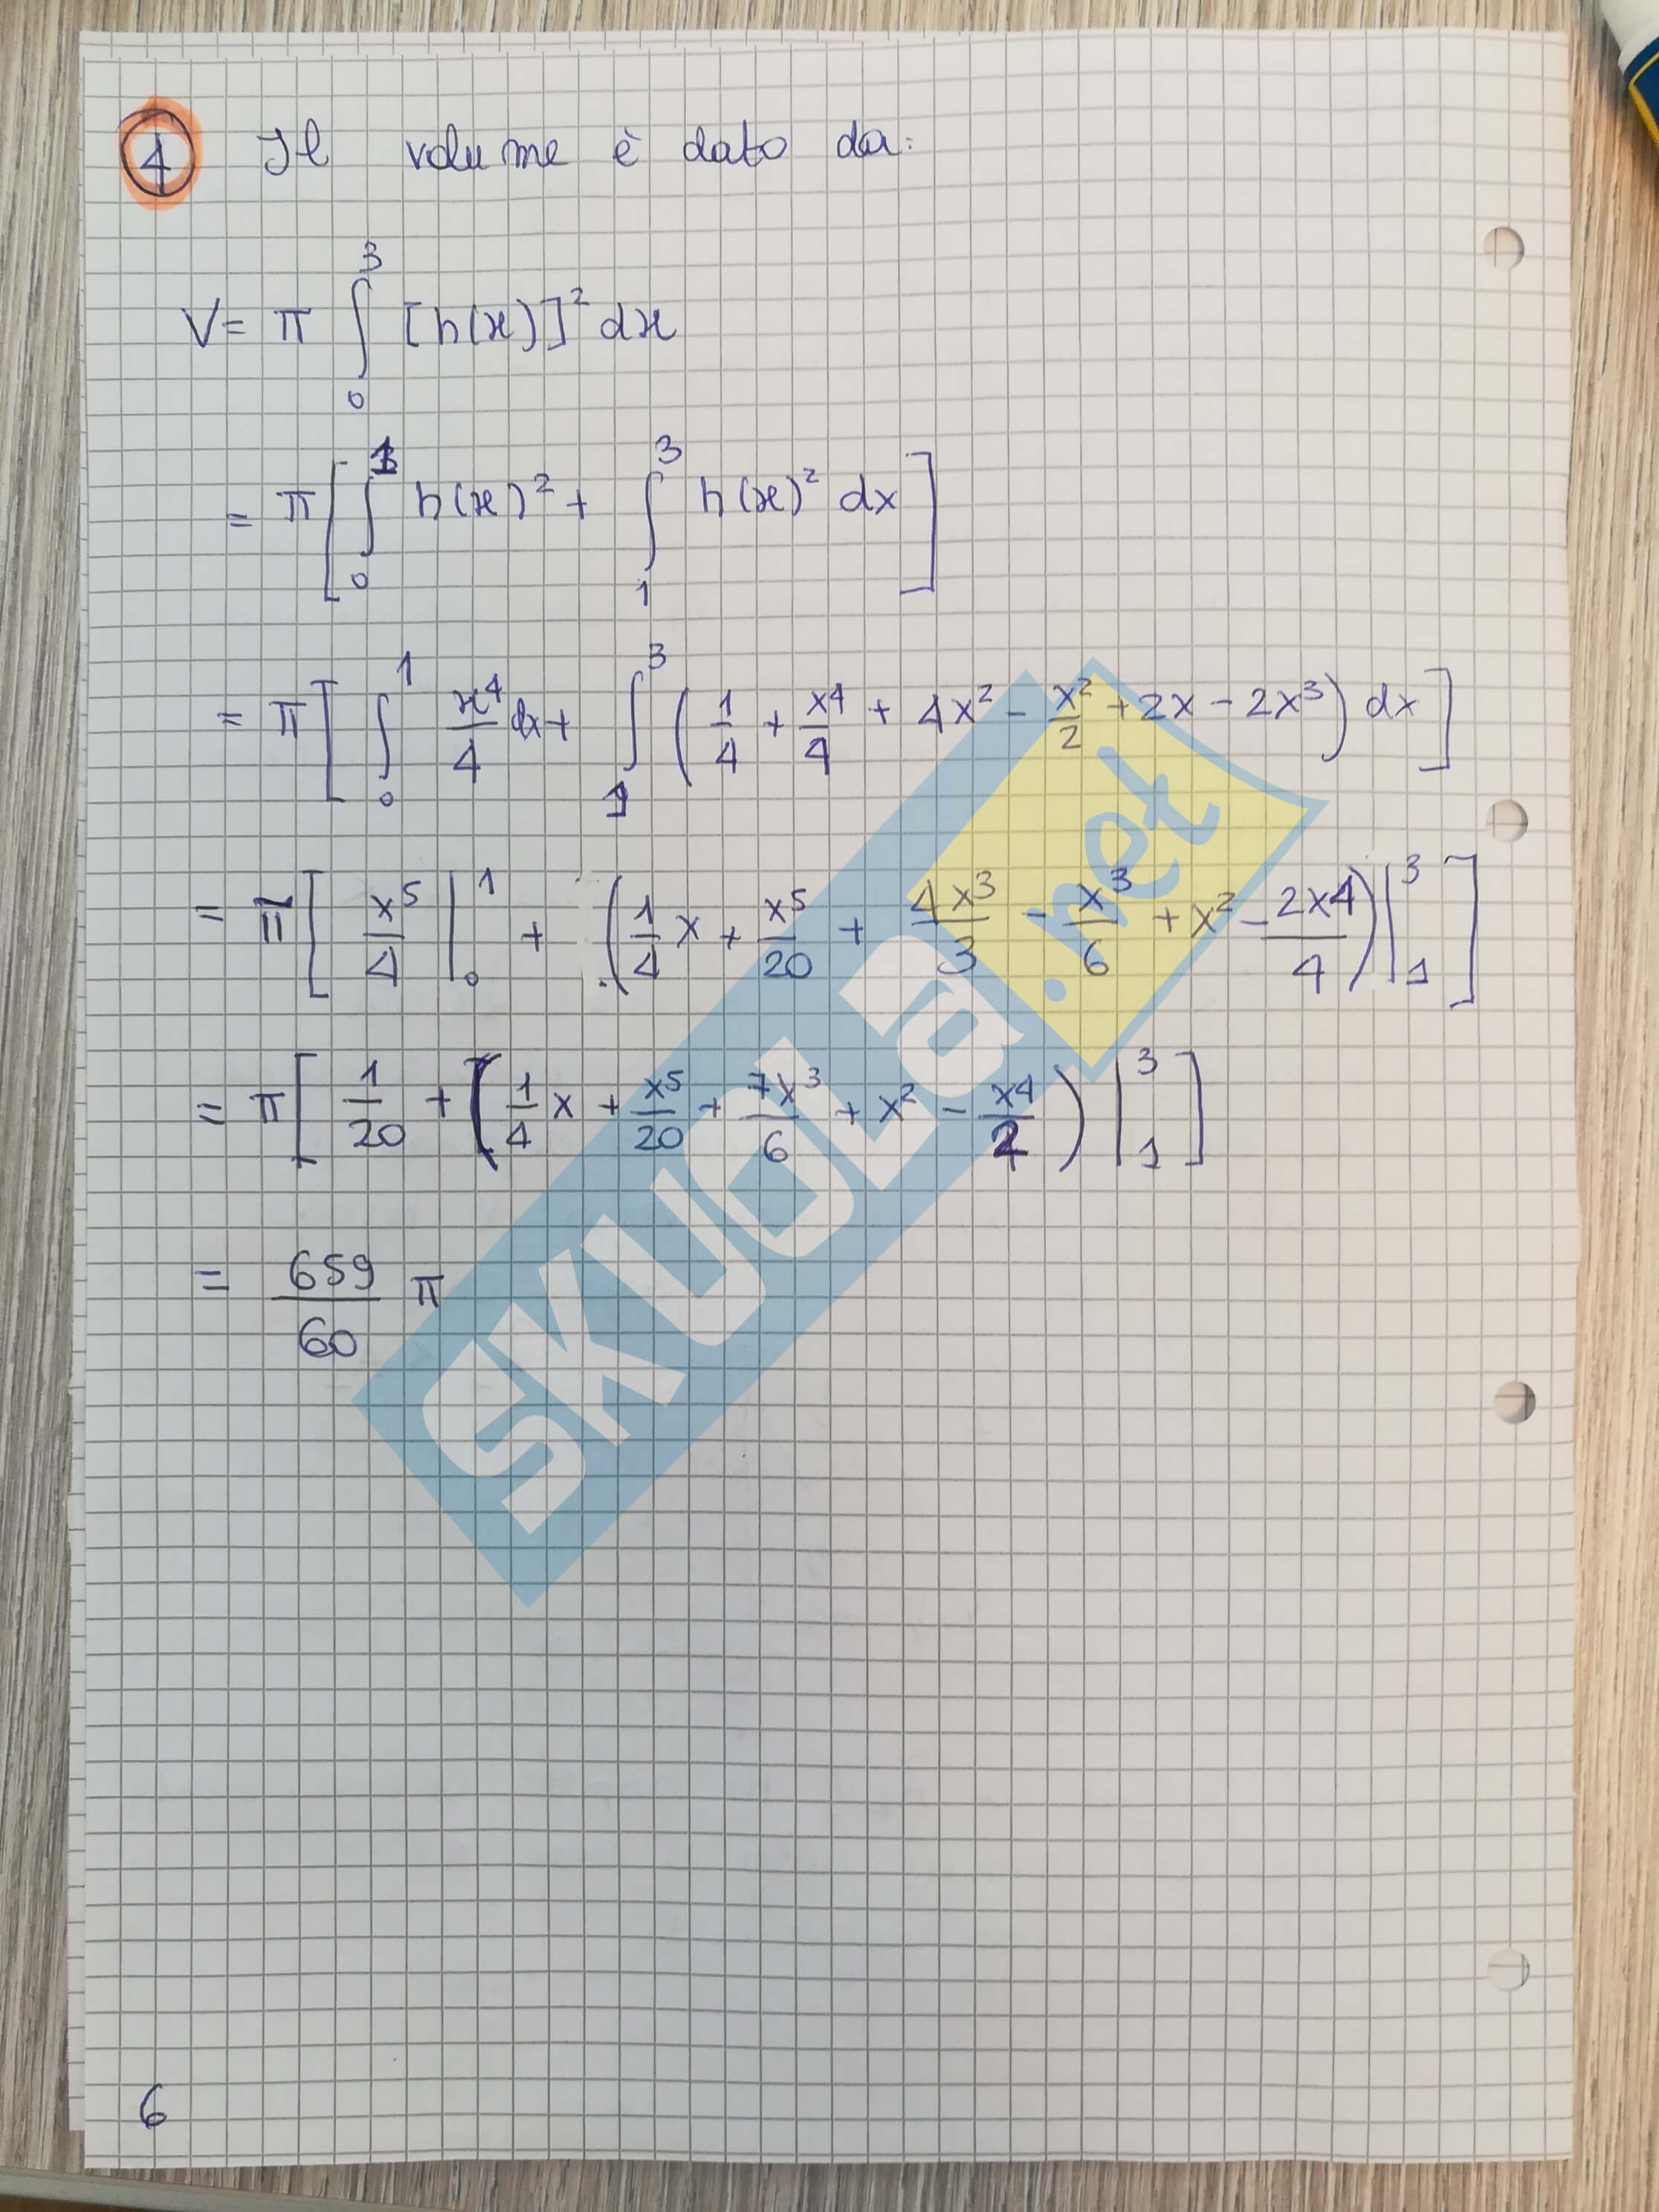 4 Il volume è dato da:
V = π ∫₀³ [h(x)]² dx
= π [ ∫₀¹ h(x)² + ∫₁³ h(x)² dx ]
= π [ ∫₀¹ x⁴/4 dx + ∫₁³ ( 1/4 + x⁴/4 + 4x² - x²/2 + 2x - 2x³ ) dx ]
= π [ x⁵/4 |₀¹ + ( 1/4 x + x⁵/20 + 4x³/3 - x³/6 + x² - 2x4/4 ) |₁³ ]
= π [ 1/20 + ( 1/4 x + x⁵/20 + 7x³/6 + x² - x4/2 ) |₁³ ]
= 659/60 π
SKUOLa.net
6